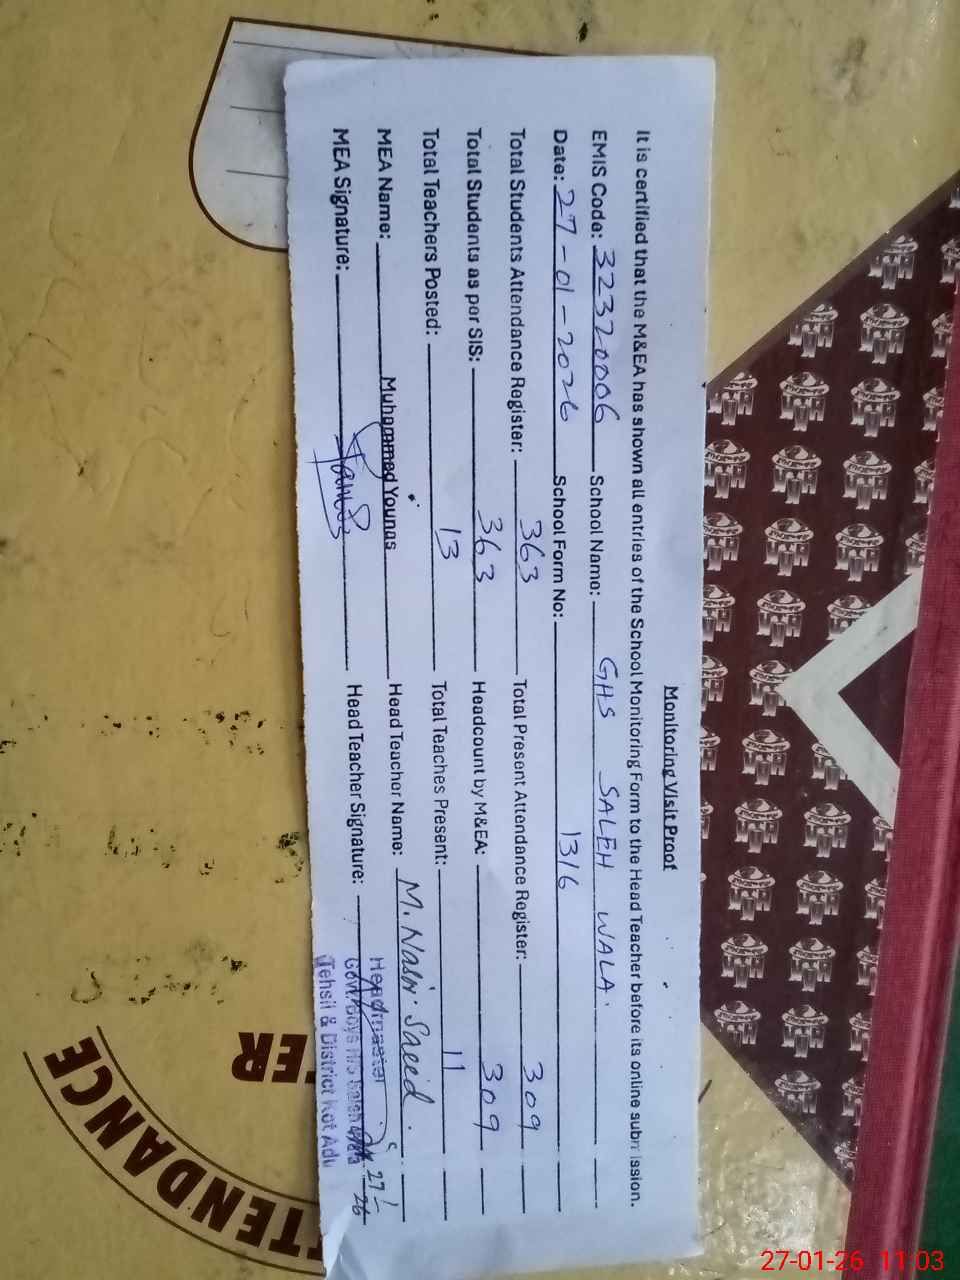 Monitoring Visit Proof
It is certified that the M&EA has shown all entries of the School Monitoring Form to the Head Teacher before its online submission.
EMIS Code: 32320006 School Name: GHS SALEH WALA.
Date: 27-01-2026 School Form No: 1316
Total Students Attendance Register: 363 Total Present Attendance Register: 309
Total Students as per SIS: 363 Headcount by M&EA: 309
Total Teachers Posted: 13 Total Teaches Present: 11
MEA Name: Muhammad Younas Head Teacher Name: M. Nasir Saeed.
MEA Signature: Head Teacher Signature:
Headmaster
Govt. Boys H/S Saleh Wala
Tehsil & District Kot Adu
27/1
26
TTENDANCE
ER
27-01-26 11:03